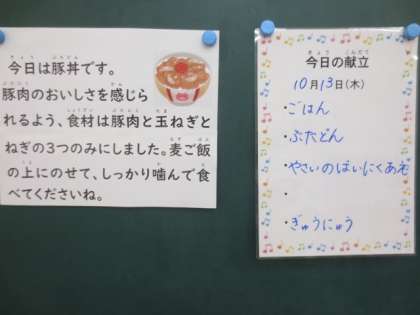 今日は豚丼です。
豚肉のおいしさを感じら
れるよう、食材は豚肉と玉ねぎと
ねぎの3つのみにしました。麦ご飯
の上にのせて、しっかり噛んで食
べてくださいね。
今日の献立
10月13日(木)
・ごはん
・ぶたどん
・やさいのばいにくあえ
・
・ぎゅうにゅう